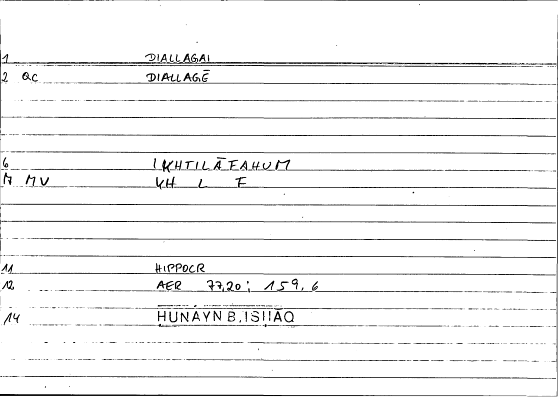 1 DIALLAGAI
2 QC DIALLAGĒ
6 IKHTILĀFAHUM
M MV KH L F
11 HIPPOCR
12 AER 77,20; 159,6
14 HUNAYN B.ISHĀQ